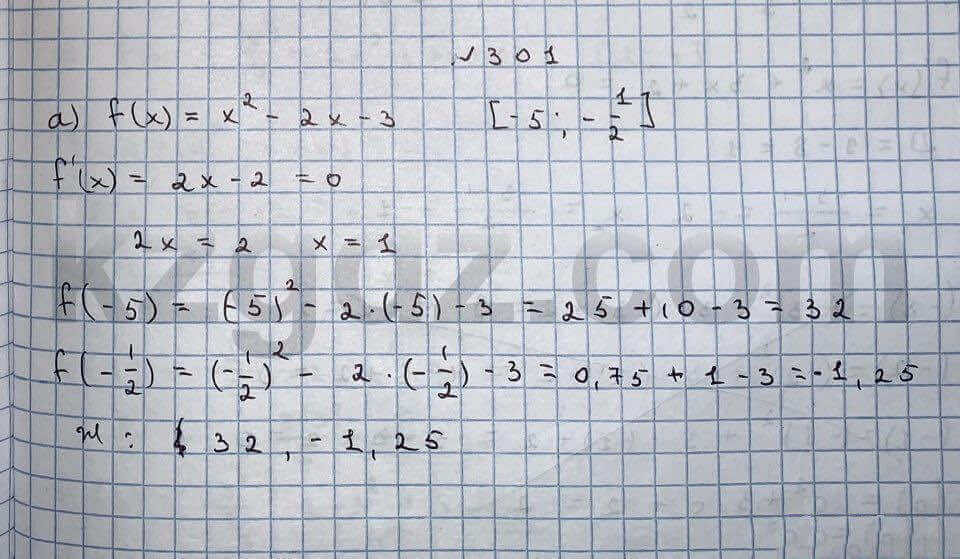 № 301
a) f(x) = x² - 2x - 3 [-5; -1/2]
f'(x) = 2x - 2 = 0
2x = 2 x = 1
kzgdz.com
f(-5) = (-5)² - 2·(-5) - 3 = 25 + 10 - 3 = 32
f(-1/2) = (-1/2)² - 2·(-1/2) - 3 = 0,75 + 1 - 3 = -1,25
: 32, -1,25